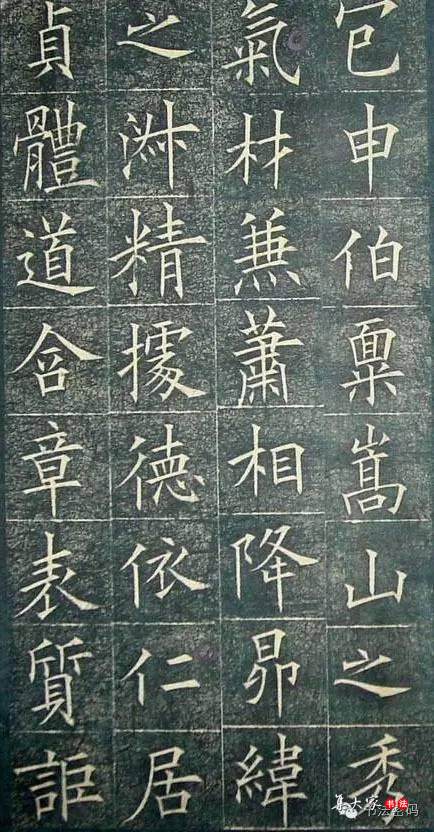 包申伯稟嵩山之秀
氣材兼蕭相降昴緯
之淑精據德依仁居
貞體道含章表質詎
集大家 书法
书法密码